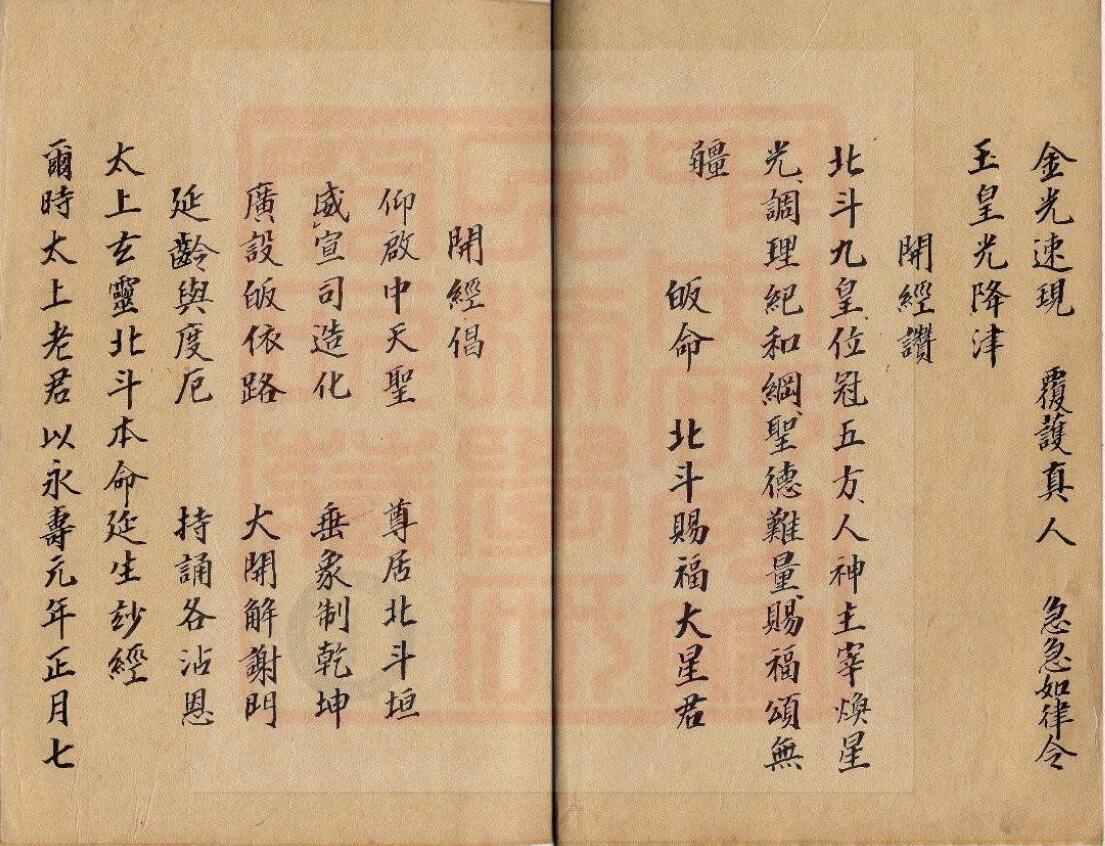 金光速現　覆護真人　急急如律令
玉皇光降津
開經讚
北斗九皇、位冠五方、人神主宰煥星
光、調理紀和綱、聖德難量、賜福頌無
疆
皈命　北斗賜福大星君
開經倡
仰啟中天聖　尊居北斗垣
威宣司造化　垂象制乾坤
廣設皈依路　大開解謝門
延齡與度厄　持誦各沾恩
太上玄靈北斗本命延生玅經
爾時太上老君以永壽元年正月七